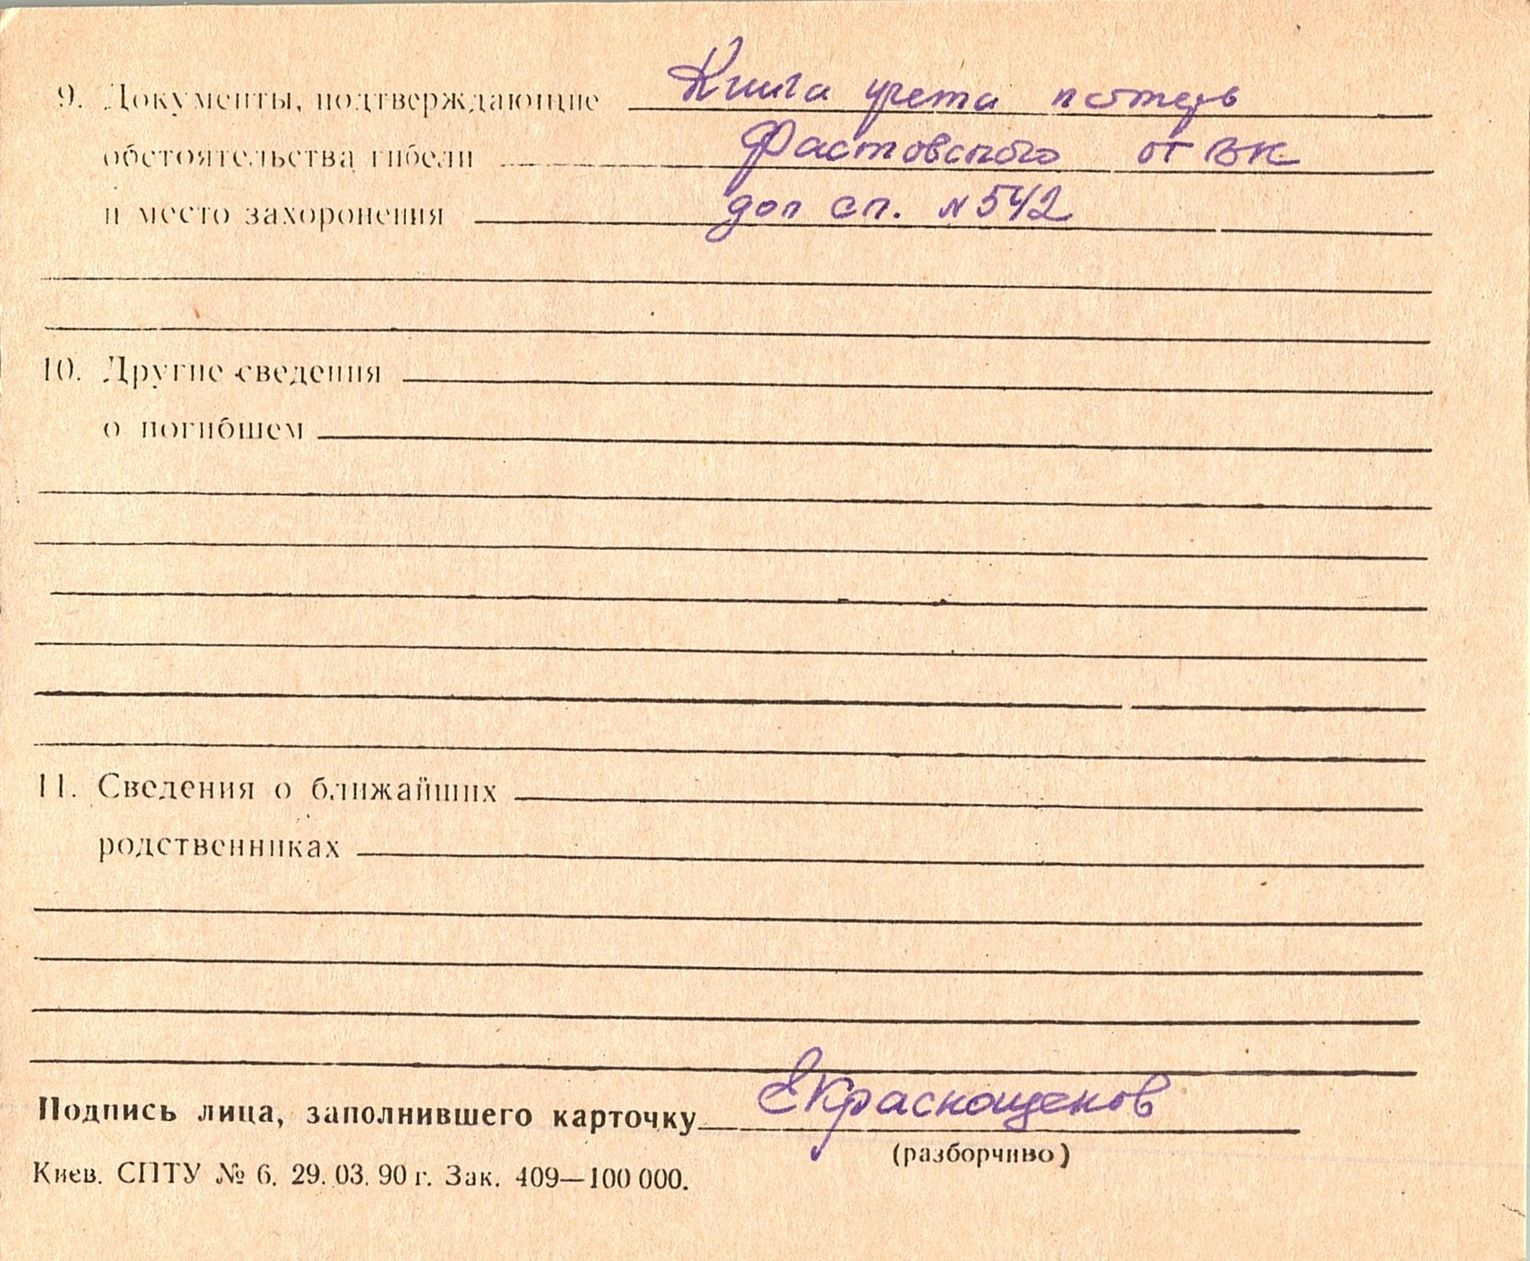 9. Документы, подтверждающие Книга учета потерь
обстоятельства гибели Фастовского от ВК
и место захоронения доп сп. №542
10. Другие сведения
о погибшем
11. Сведения о ближайших
родственниках
Подпись лица, заполнившего карточку ЕКраснощеков
(разборчиво)
Киев. СПТУ № 6. 29. 03. 90 г. Зак. 409—100 000.